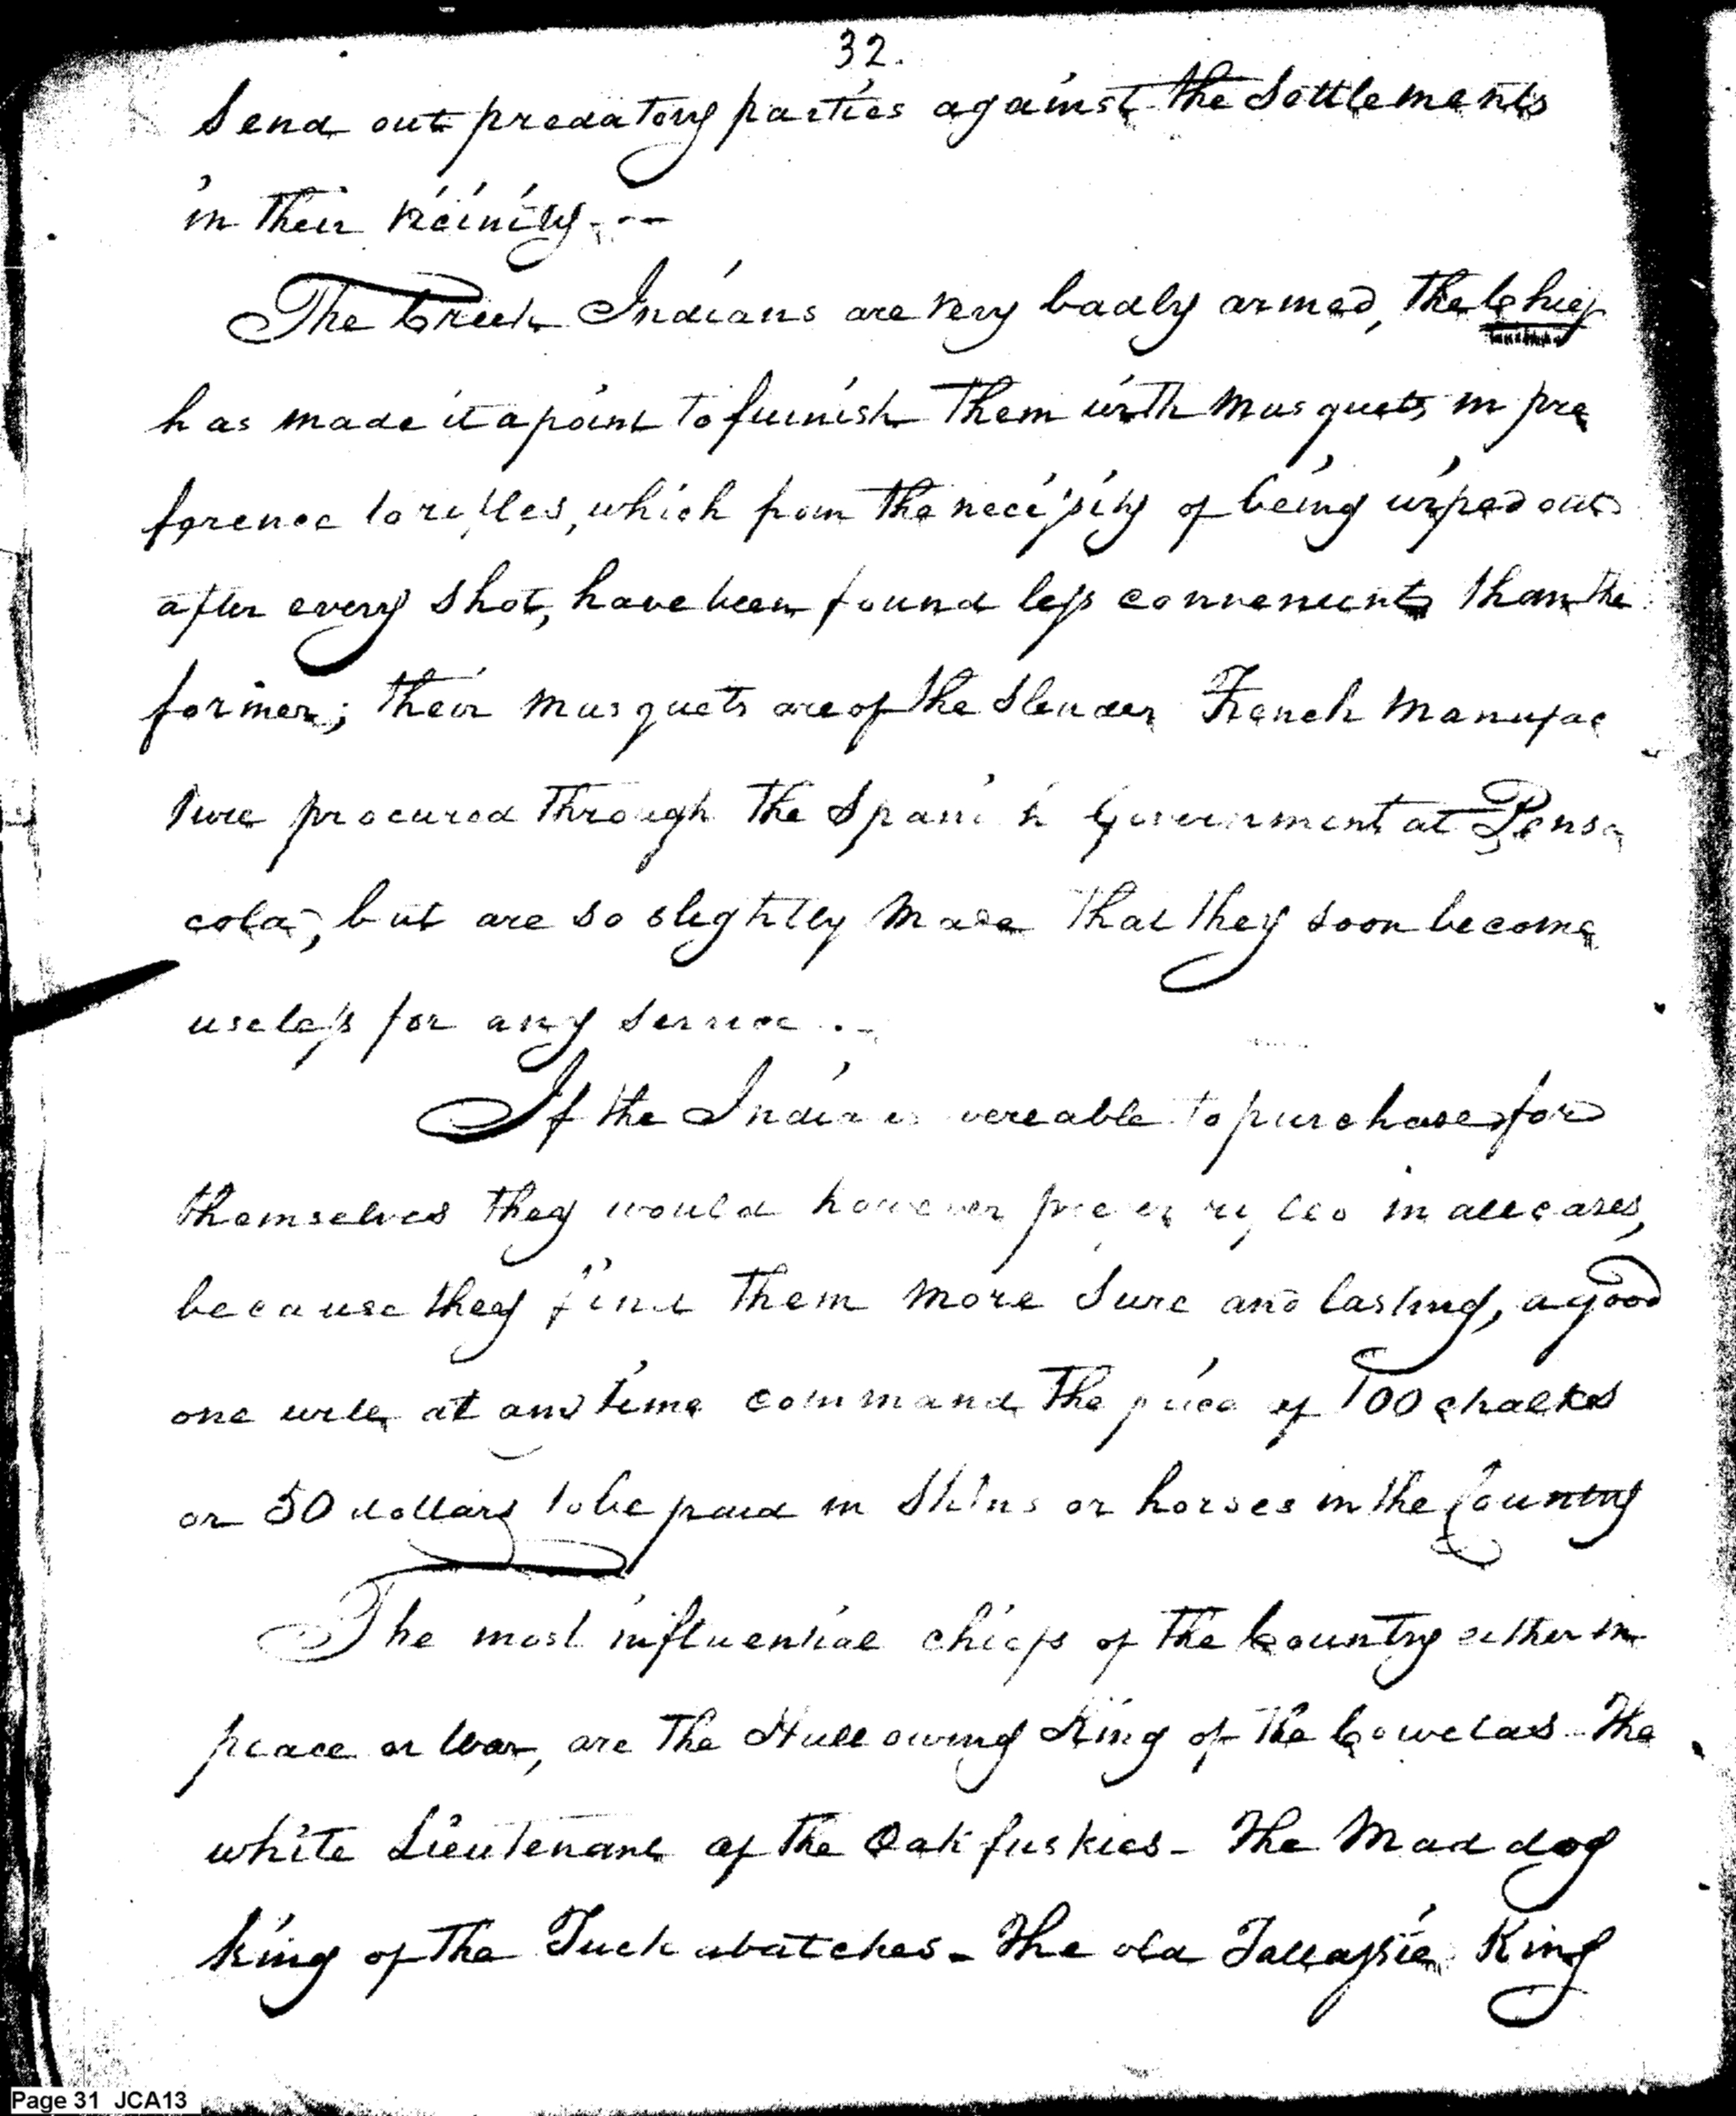 32.
Send out predatory parties against the Settlements
in their vicinity. --
The Creek Indians are very badly armed, the Chief
has made it a point to furnish them with musquets in pre
ference to rifles, which from the necessity of being wiped out
after every shot, have been found less convenient than the
former; their musquets are of the slender French manufac
ture procured through the Spanish Government at Pensa
cola, but are so slightly made that they soon become
useless for any service. -
If the Indians were able to purchase for
themselves they would however prefer rifles in all cases,
because they find them more sure and lasting, a good
one will at any time command the price of 100 chalks
or 50 dollars to be paid in Skins or horses in the Country
The most influential chiefs of the Country either in
peace or War, are the Hallowing King of the Cowetas - The
white Lieutenant of the Oakfuskies - The Mad dog
King of the Tuckabatches - The old Tallassie King
Page 31 JCA13